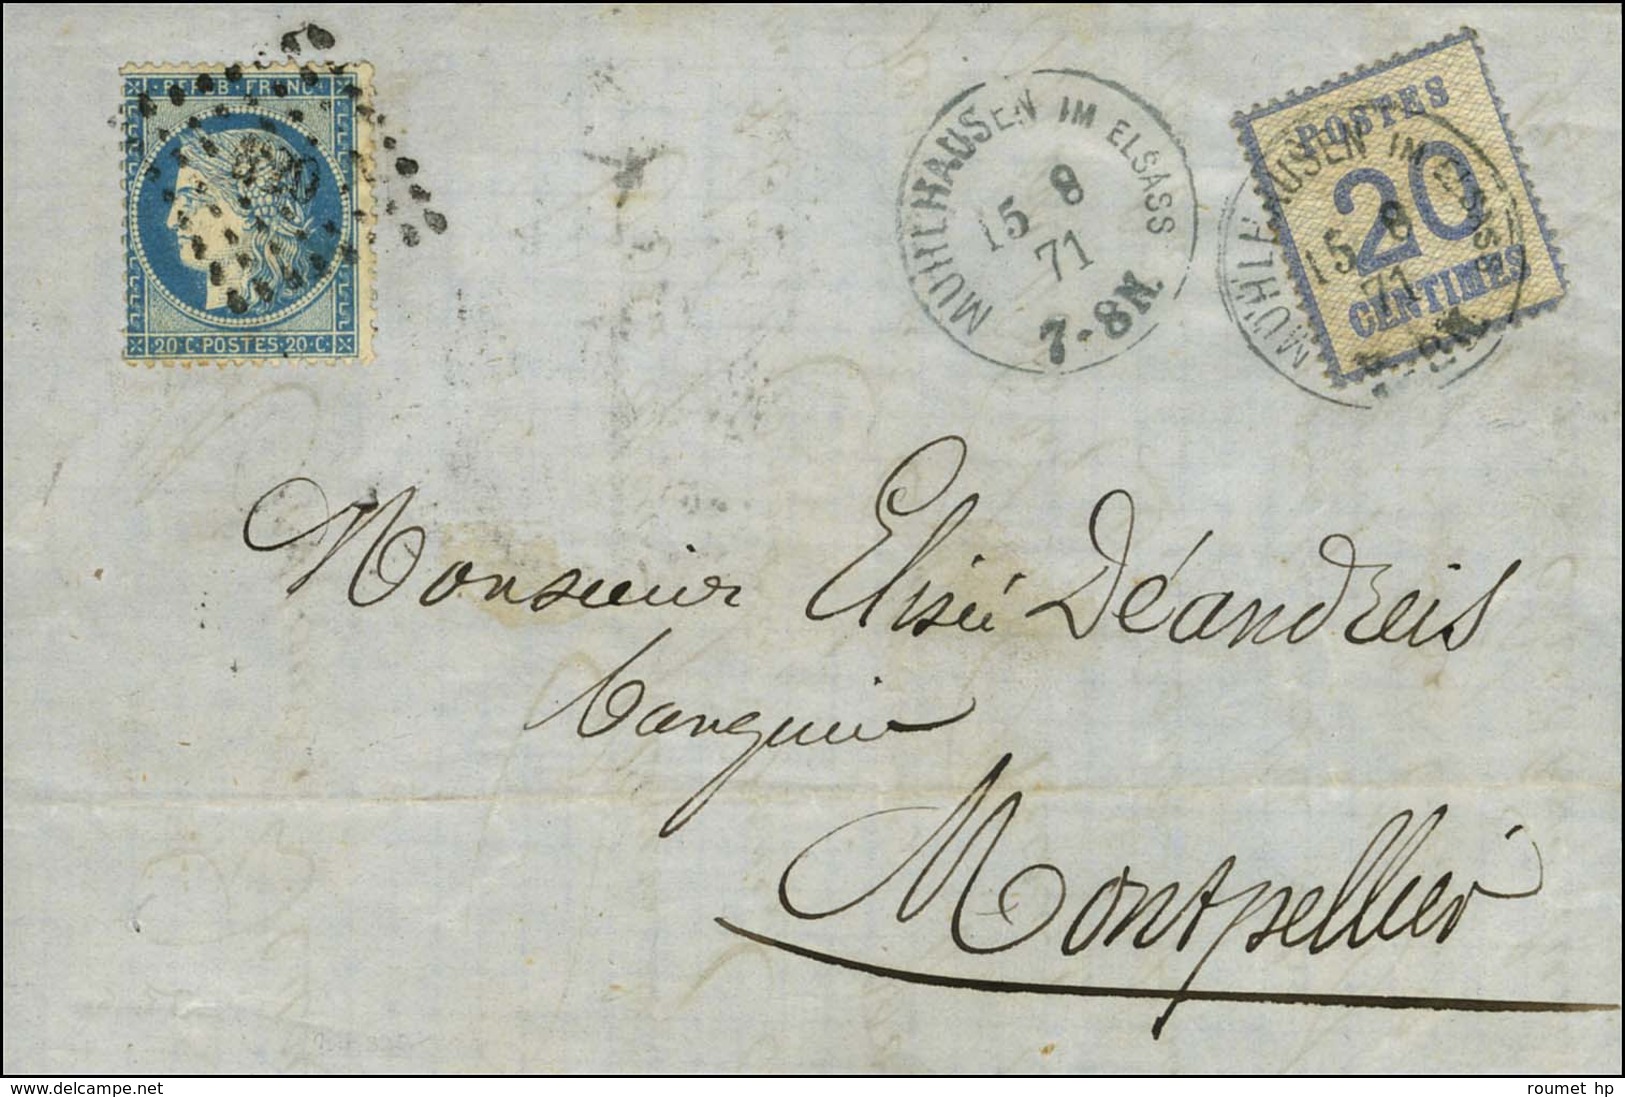 REPUB · FRANC ·
20 · C · POSTES · 20 · C ·
MÜHLHAUSEN IM ELSASS
15 8
71
7-8N.
POSTES
20
CENTIMES
MÜHLH AUSEN IM ELSASS
15 8
71
Monsieur Elisée Déandreis
banquier
Montpellier
www.delcampe.net
roumet hp